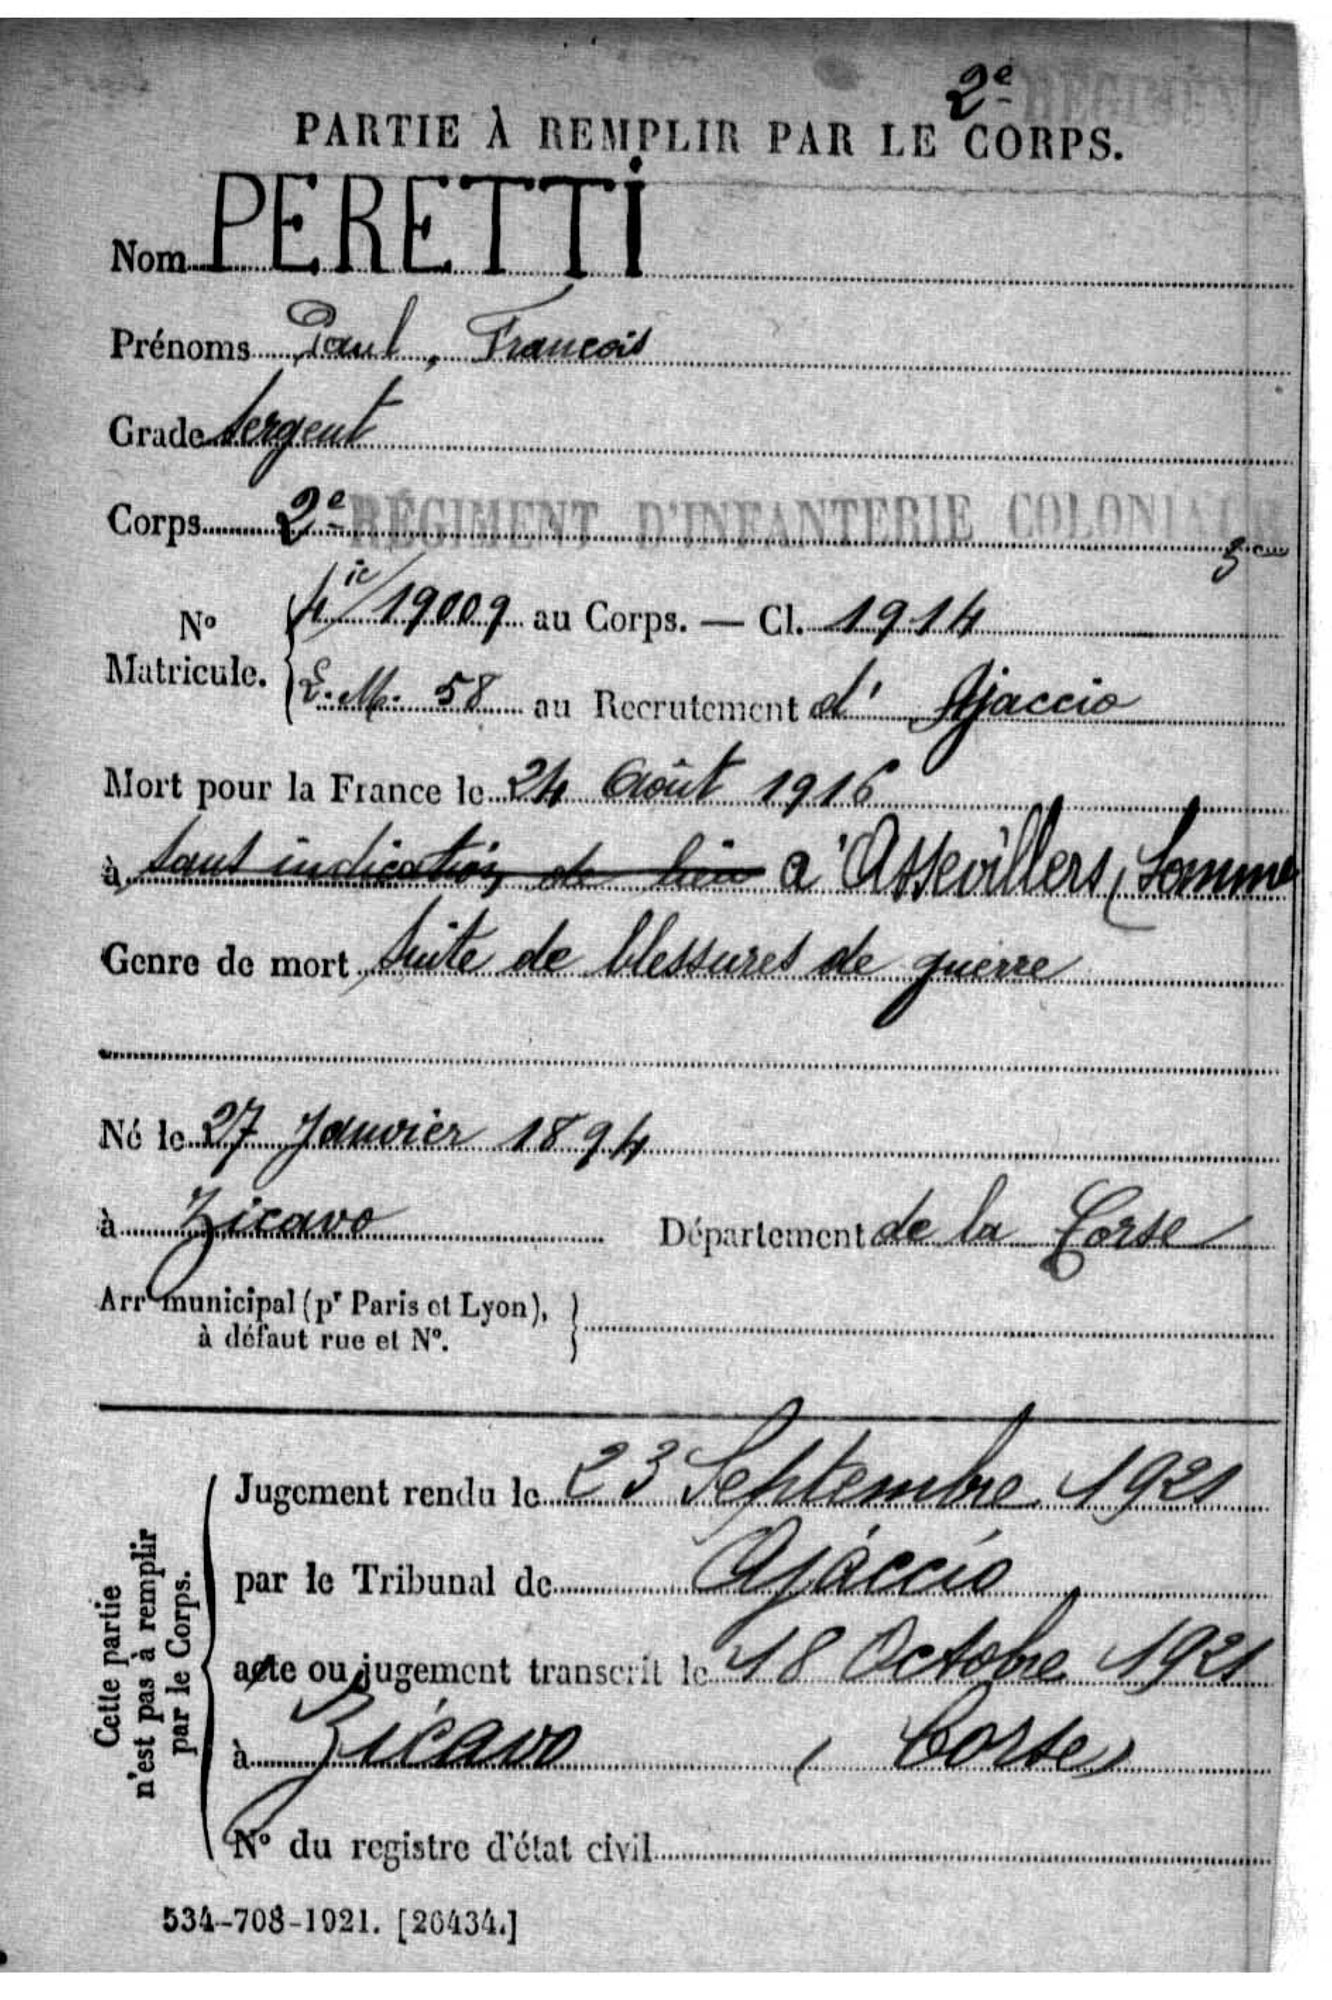 2e RÉGIMENT
PARTIE À REMPLIR PAR LE CORPS.
Nom PERETTI
Prénoms Paul, François
Grade Sergent
Corps 2e RÉGIMENT D'INFANTERIE COLONIALE
No Matricule. 4ic/19009 au Corps. — Cl. 1914
E.M. 58 au Recrutement d'Ajaccio
Mort pour la France le 24 Août 1916
à sans indication de lieu a'Assevillers (Somme
Genre de mort Suite de blessures de guerre
Né le 27 Janvier 1894
à Zicavo Département de la Corse
Arrt municipal (pr Paris et Lyon),
à défaut rue et No.
Cette partie
n'est pas à remplir
par le Corps.
Jugement rendu le 23 Septembre 1921
par le Tribunal de Ajaccio
acte ou jugement transcrit le 18 Octobre 1921
à Zicavo (Corse)
No du registre d'état civil
534-708-1921. [26434.]